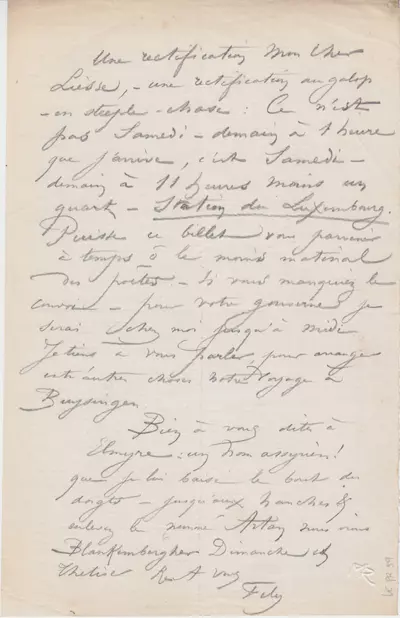 Une rectification mon cher
Liesse, - une rectification au galop
- en steeple-chase : Ce n'est
pas Samedi - demain à 1 heure
que j'arrive, c'est Samedi -
demain à 11 heures moins un
quart - Station du Luxembourg.
Puisse ce billet vous parvenir
à temps ô le moins matinal
des poètes - Si vous manquiez le
convoi - pour votre gouverne je
serai chez moi jusqu'à midi
Je tiens à vous parler, pour arranger
entr'autres choses notre voyage à
Buysingen
Bien à vous dites à
Elmyre : un nom assyrien!
que je lui baise le bout des
doigts - jusqu'aux hanches &
le nommé Artan nous irons
Blankenberghe Dimanche
à vous
Fély